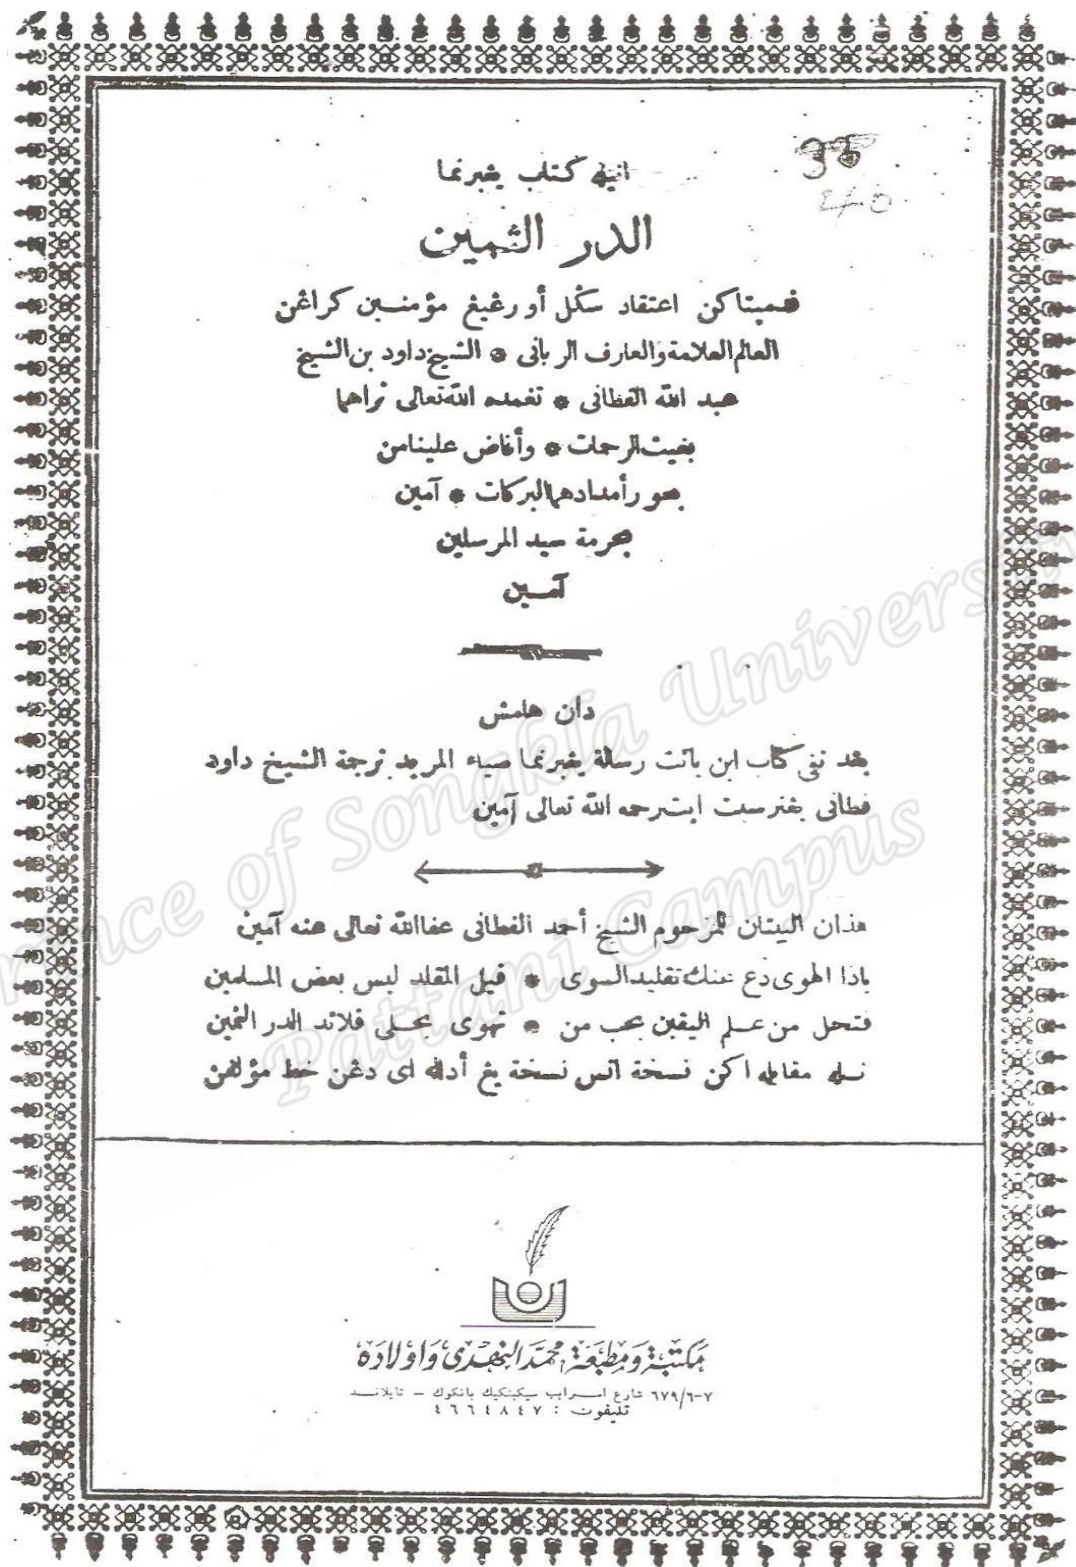 انيله كتاب يغبرنما
الدر الثمين
فدميتاكن اعتقاد سكل أورڠيڠ مؤمنين كراڠن
العالم العلامة والعارف الربانى * الشيخ داود بن الشيخ
عبد الله الفطانى * تغمده الله تعالى ثراهما
بغيث الرحمات * وأفاض علينا من
بحور أمدادهما البركات * آمين
بحرمة سيد المرسلين
آمـين
دان هامش
فد تفى كتاب اين باتت رسالة يغبرنما ضياء المريد ترجمة الشيخ داود
فطانى يغترسبت ايت رحمه الله تعالى آمين
هذان البيتان للمرحوم الشيخ أحمد الفطانى عفا الله تعالى عنه آمين
ياذا الهوى دع عنك تقليد السوى * قيل المقلد ليس بعض المسلمين
فتحل من علم اليقين بحب من * تهوى بحلى قلائد الدر الثمين
تله مقابله اكن نسخة اتس نسخة يڠ أدله اى دڠن خط مؤلفن
35
240
مكتبة ومطبعة محمد النهدى واولاده
٦٧٩/٦-٧ شارع اسرايب سيكينكيك بانكوك - تايلاند
تليفون : ٤٦٦٤٨٤٧
Prince of Songkla University
Pattani Campus